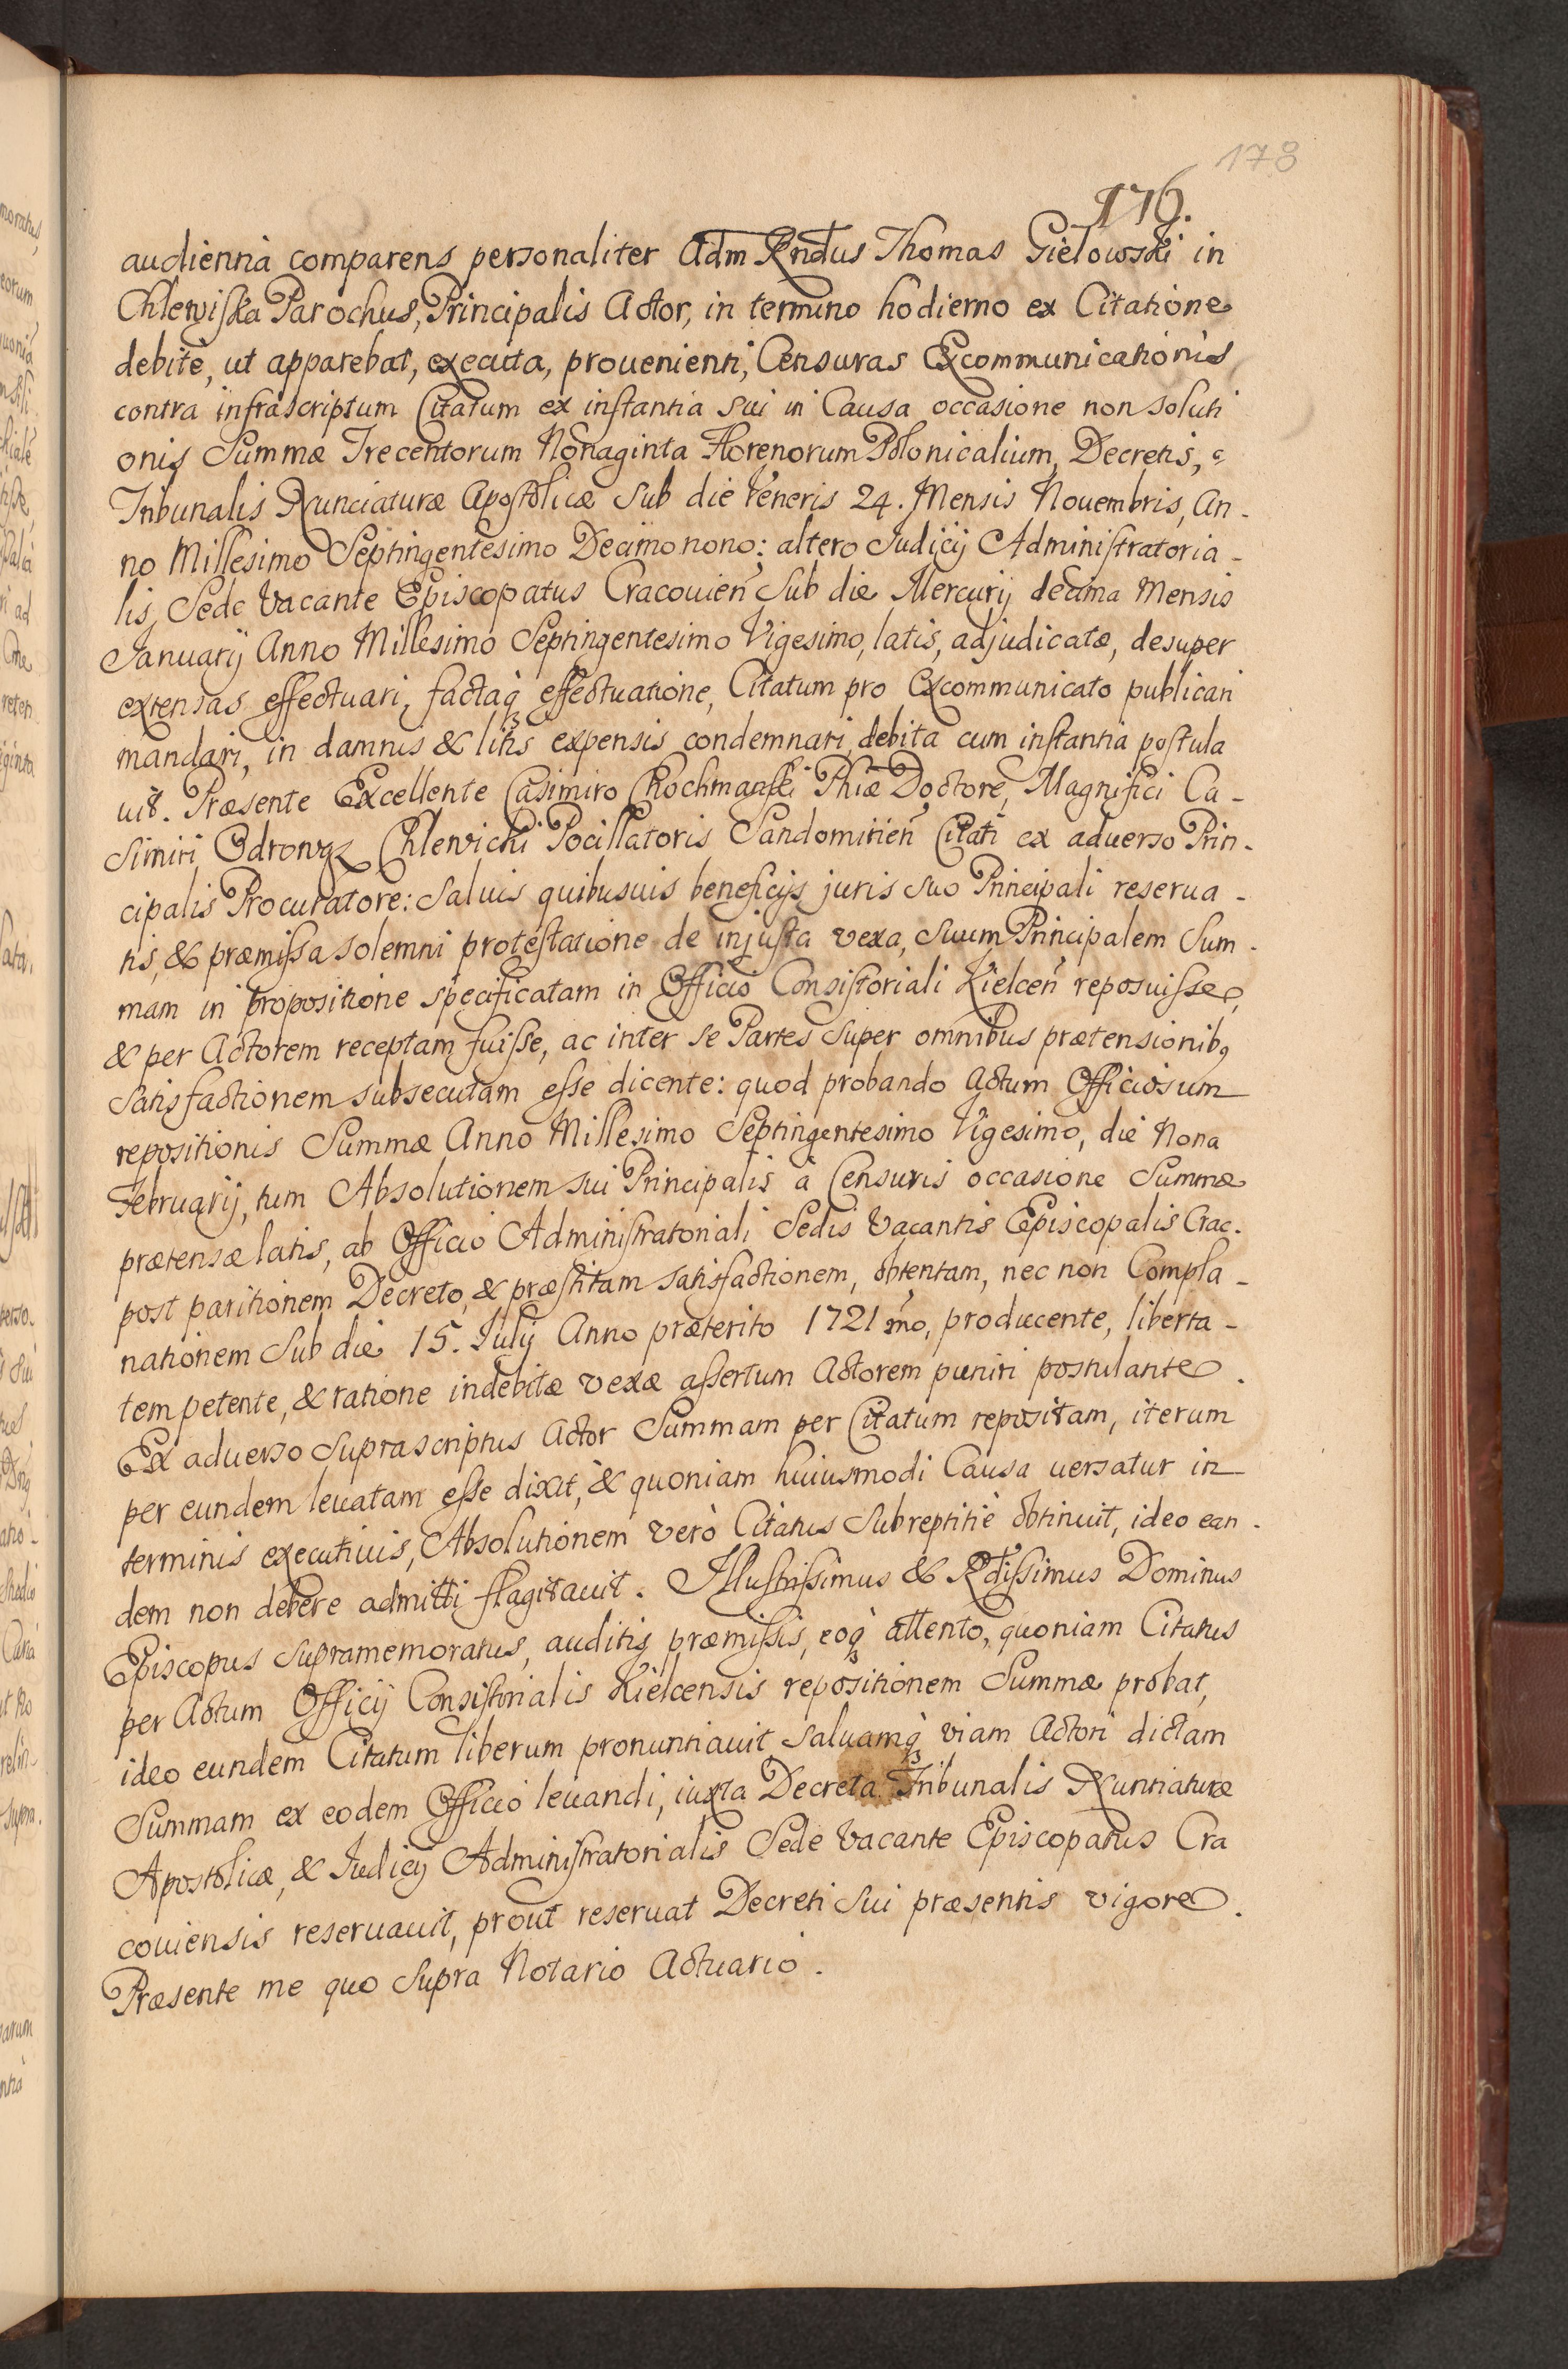 178
176.
audientia comparens personaliter Adm Rndus Thomas Gielowski in
Chlewiska Parochus, Principalis Actor, in termino hodierno ex Citatione
debitè, ut apparebat, executa, prouenienti, Censuras Excommunicationis
contra infrascriptum Citatum ex instantia sui in Causa occasione non soluti
onis Summæ Trecentorum Nonaginta Florenorum Polonicalium, Decretis,
Tribunalis Nunciaturæ Apostolicæ sub die Veneris 24. Mensis Nouembris, An-
no Millesimo Septingentesimo Decimo nono; altero Judicij Administratoria-
lis, Sede Vacante Episcopatus Cracouien̄ sub die Mercurij decima Mensis
Januarij Anno Millesimo Septingentesimo Vigesimo, latis, adjudicatæ, desuper
extensas effectuari, factaq3 effectuatione, Citatum pro Excommunicato publicari
mandari, in damnis & litis expensis condemnari, debita cum instantia postula
uit. Præsente Excellente Casimiro Chochmanski Phiæ Doctore, Magnifici Ca-
simiri Odrowąz Chlewicki Pocillatoris Sandomirien̄ Citati ex aduerso Prin-
cipalis Procuratore: saluis quibusuis beneficijs juris suo Principali reserua-
tis, & præmissa solemni protestatione de injusta vexa, suum Principalem Sum-
mam in propositione specificatam in Officio Consistoriali Kielcen̄ reposuisse,
& per Actorem receptam fuisse, ac inter se Partes super omnibus prætensionib9
satisfactionem subsecutam esse dicente: quod probando Actum Officiosum
repositionis Summæ Anno Millesimo Septingentesimo Vigesimo, die Nona
Februarij, tum Absolutionem sui Principalis à Censuris occasione Summæ
prætensæ latis, ab Officio Administratoriali Sedis Vacantis Episcopalis Crac.
post paritionem Decreto, & præstitam satisfactionem, obtentam, nec non Compla-
nationem sub die 15. Julij Anno præterito 1721 mo, producente, liberta-
tem petente, & ratione indebitæ vexæ assertum Actorem puniri postulante.
Ex aduerso suprascriptus Actor Summam per Citatum repositam, iterum
per eundem leuatam esse dixit, & quoniam huiusmodi Causa uersatur in
terminis executiuis, Absolutionem verò Citatus subreptitiè obtinuit, ideo ean-
dem non debere admitti flagitauit. Illustrissimus & Rdissimus Dominus
Episcopus supramemoratus, auditis præmissis, eoq3 attento, quoniam Citatus
per Actum Officij Consistorialis Kielcensis repositionem Summæ probat,
ideo eundem Citatum liberum pronuntiauit saluamq3 viam Actori dictam
Summam ex eodem Officio leuandi, iuxta Decreta Tribunalis Nuntiaturæ
Apostolicæ, & Judicij Administratorialis Sede Vacante Episcopatus Cra
couiensis reseruauit, prout reseruat Decreti sui præsentis vigore.
Præsente me quo supra Notario Actuario.